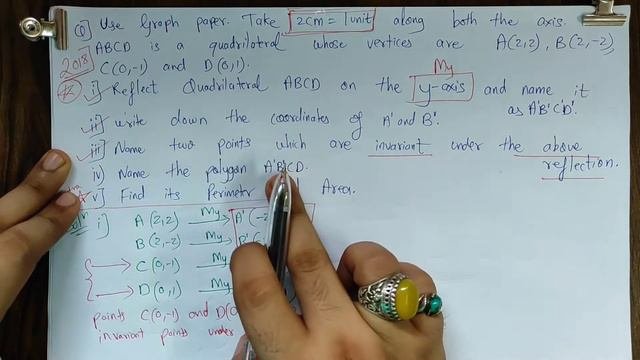 Q) Use Graph paper. Take 2cm = 1 unit along both the axis.
ABCD is a quadrilateral whose vertices are A(2,2), B(2,-2)
2018 C(0,-1) and D(0,1).
My
i) Reflect Quadrilateral ABCD on the y-axis and name it
as A'B'C'D'.
ii) Write down the coordinates of A' and B'.
iii) Name two points which are invariant under the above
reflection.
iv) Name the polygon A'B'CD.
v) Find its Perimeter Area.
i] A(2,2) My A'(-2
B(2,-2) My B'(-
C(0,-1) My
D(0,1) M
points C(0,-1) and D(0
invariant points under